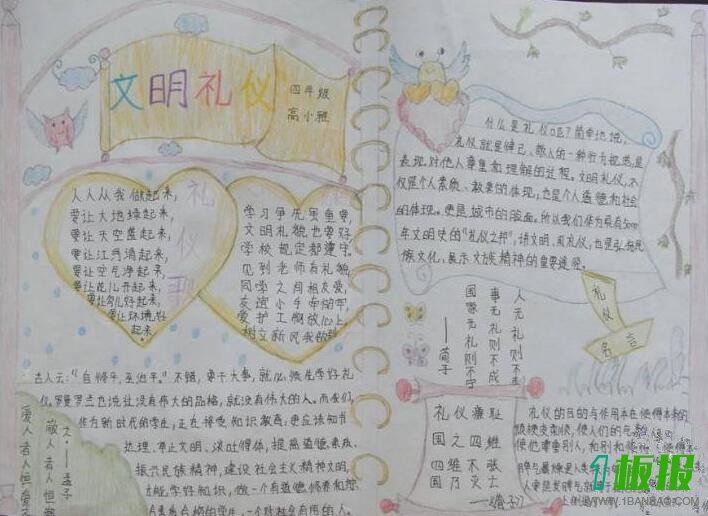 文明礼仪
四年级
高小雅
礼仪歌
人人从我做起来,
要让大地绿起来,
要让天空蓝起来,
要让江河清起来,
要让空气净起来,
要让花儿开起来,
要让环境好
起来。
学习争先果重要,
文明礼貌也要好
学校规定都遵守。
见到老师有礼貌
同学之间相友爱,
友谊小手牵的牢,
树立新风我做到
古人云:
不错,要干大事,就必须先学好礼
仪。罗曼罗兰也说:让没有伟大的品格,就没有伟大的人。而我们
作为新时代的学生,正在接受知识教育,更应该知书
达理,举止文明、谈吐得体,提高道德素质,
振兴民族精神,建设社会主义精神文明,
才能学好知识,做一个有道德修养和
有素质
的学生,一个对社会有用的人。
爱人者人恒爱
敬人者人恒敬
之。——孟子
什么是礼仪呢?简单地说,
礼仪就是律己、敬人的一种行为规范,是
表现对他人尊重和理解的过程。文明礼仪,不
仅是个人素质、教养的体现,也是个人道德和社会
的体现。更是城市的脸面。所以我们作为具有5000
年文明史的“礼仪之邦”,讲文明,用礼仪,也是弘扬民
族文化、展示民族精神的重要途径。
礼仪
名言
人无礼则不生
事无礼则不成
国家无礼则不宁
——荀子
礼仪廉耻
国之四维
四维不张
国乃灭亡
——管子
礼仪的目的与作用本在使得本来的
顽梗变柔顺,使人们的气
使他尊重别人,和别和
1板报
WWW.1BANBAO.COM